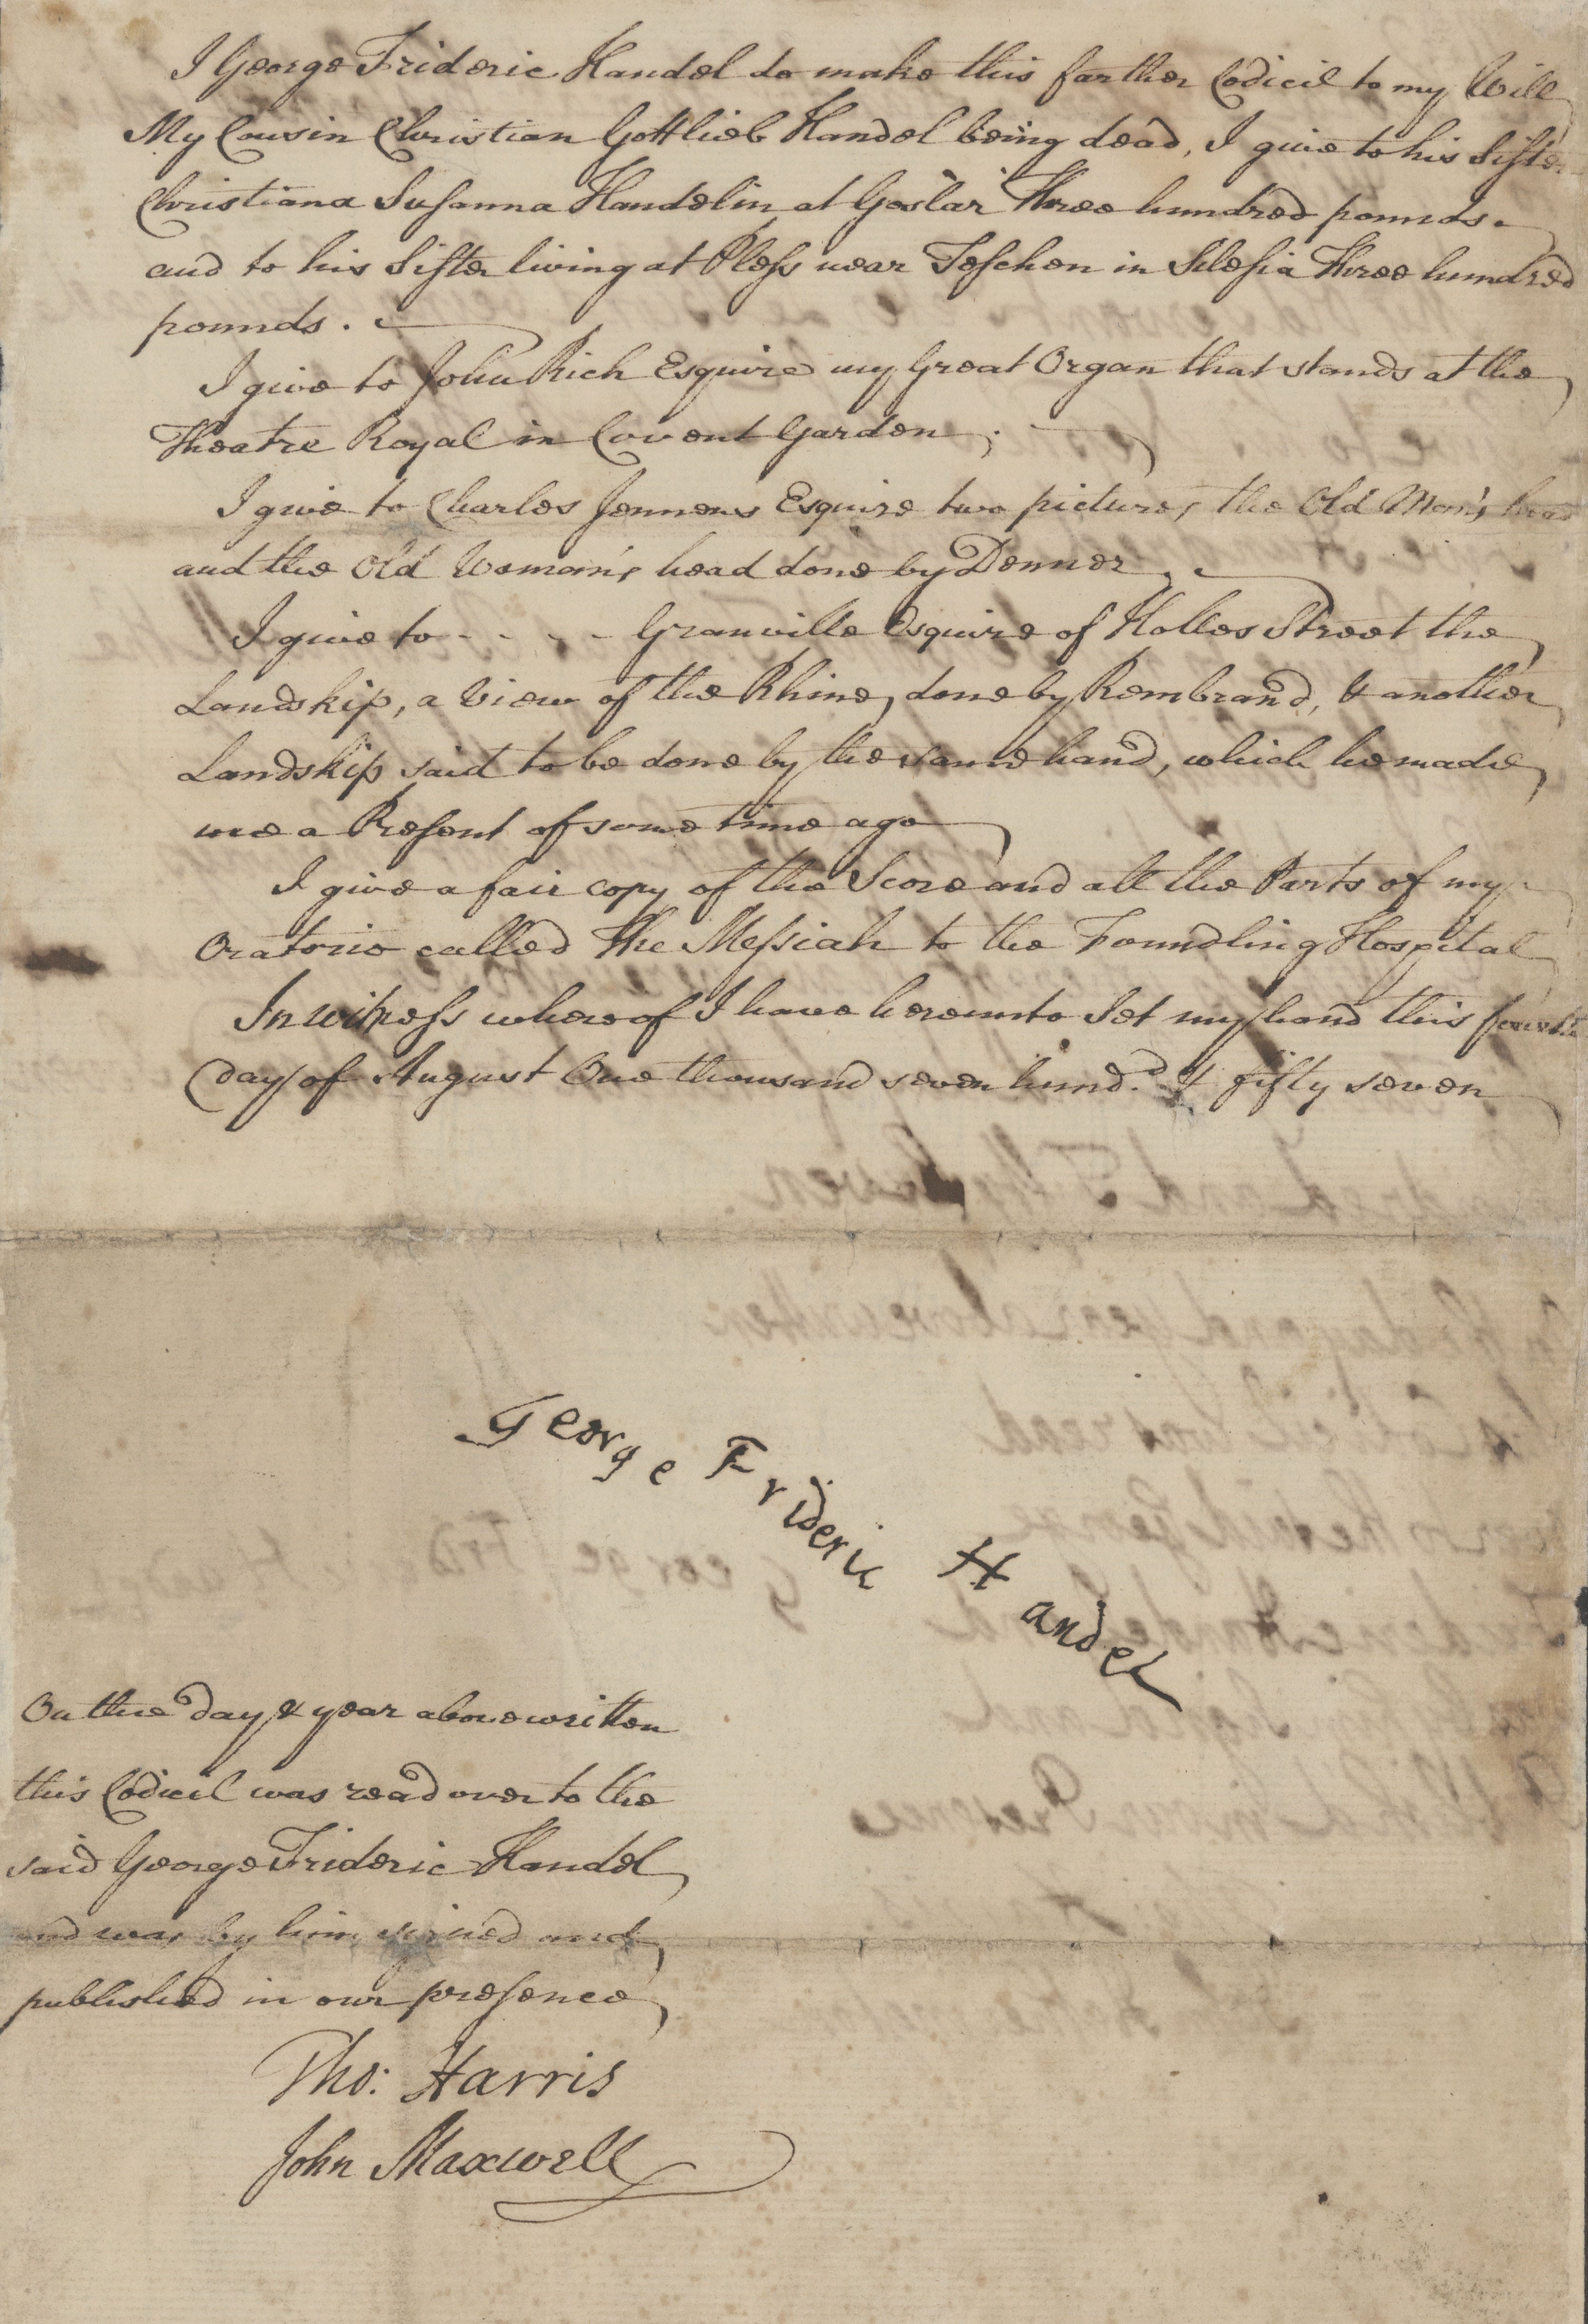 I George Frideric Handel do make this farther Codicil to my Will
My Cousin Christian Gottlieb Handel being dead, I give to his Sister
Christiana Susanna Handelin at Goslar Three hundred pounds.
and to his Sister living at Pless near Teschen in Silesia Three hundred
pounds.
I give to John Rich Esquire my Great Organ that stands at the
Theatre Royal in Covent Garden.
I give to Charles Jennens Esquire two pictures the Old Man's head
and the Old Woman's head done by Denner.
I give to - - - - Granville Esquire of Holles Street the
Landskip, a View of the Rhine, done by Rembrand, & another
Landskip said to be done by the same hand, which he made
me a Present of some time ago
I give a fair copy of the Score and all the Parts of my
Oratorio called The Messiah to the Foundling Hospital
In witness whereof I have hereunto Set my hand this fourth
day of August One thousand seven hund.d & fifty seven
George Frideric Handel
On the day & year above written
this Codicil was read over to the
said George Frideric Handel
and was by him signed and
published in our presence
Tho: Harris
John Maxwell